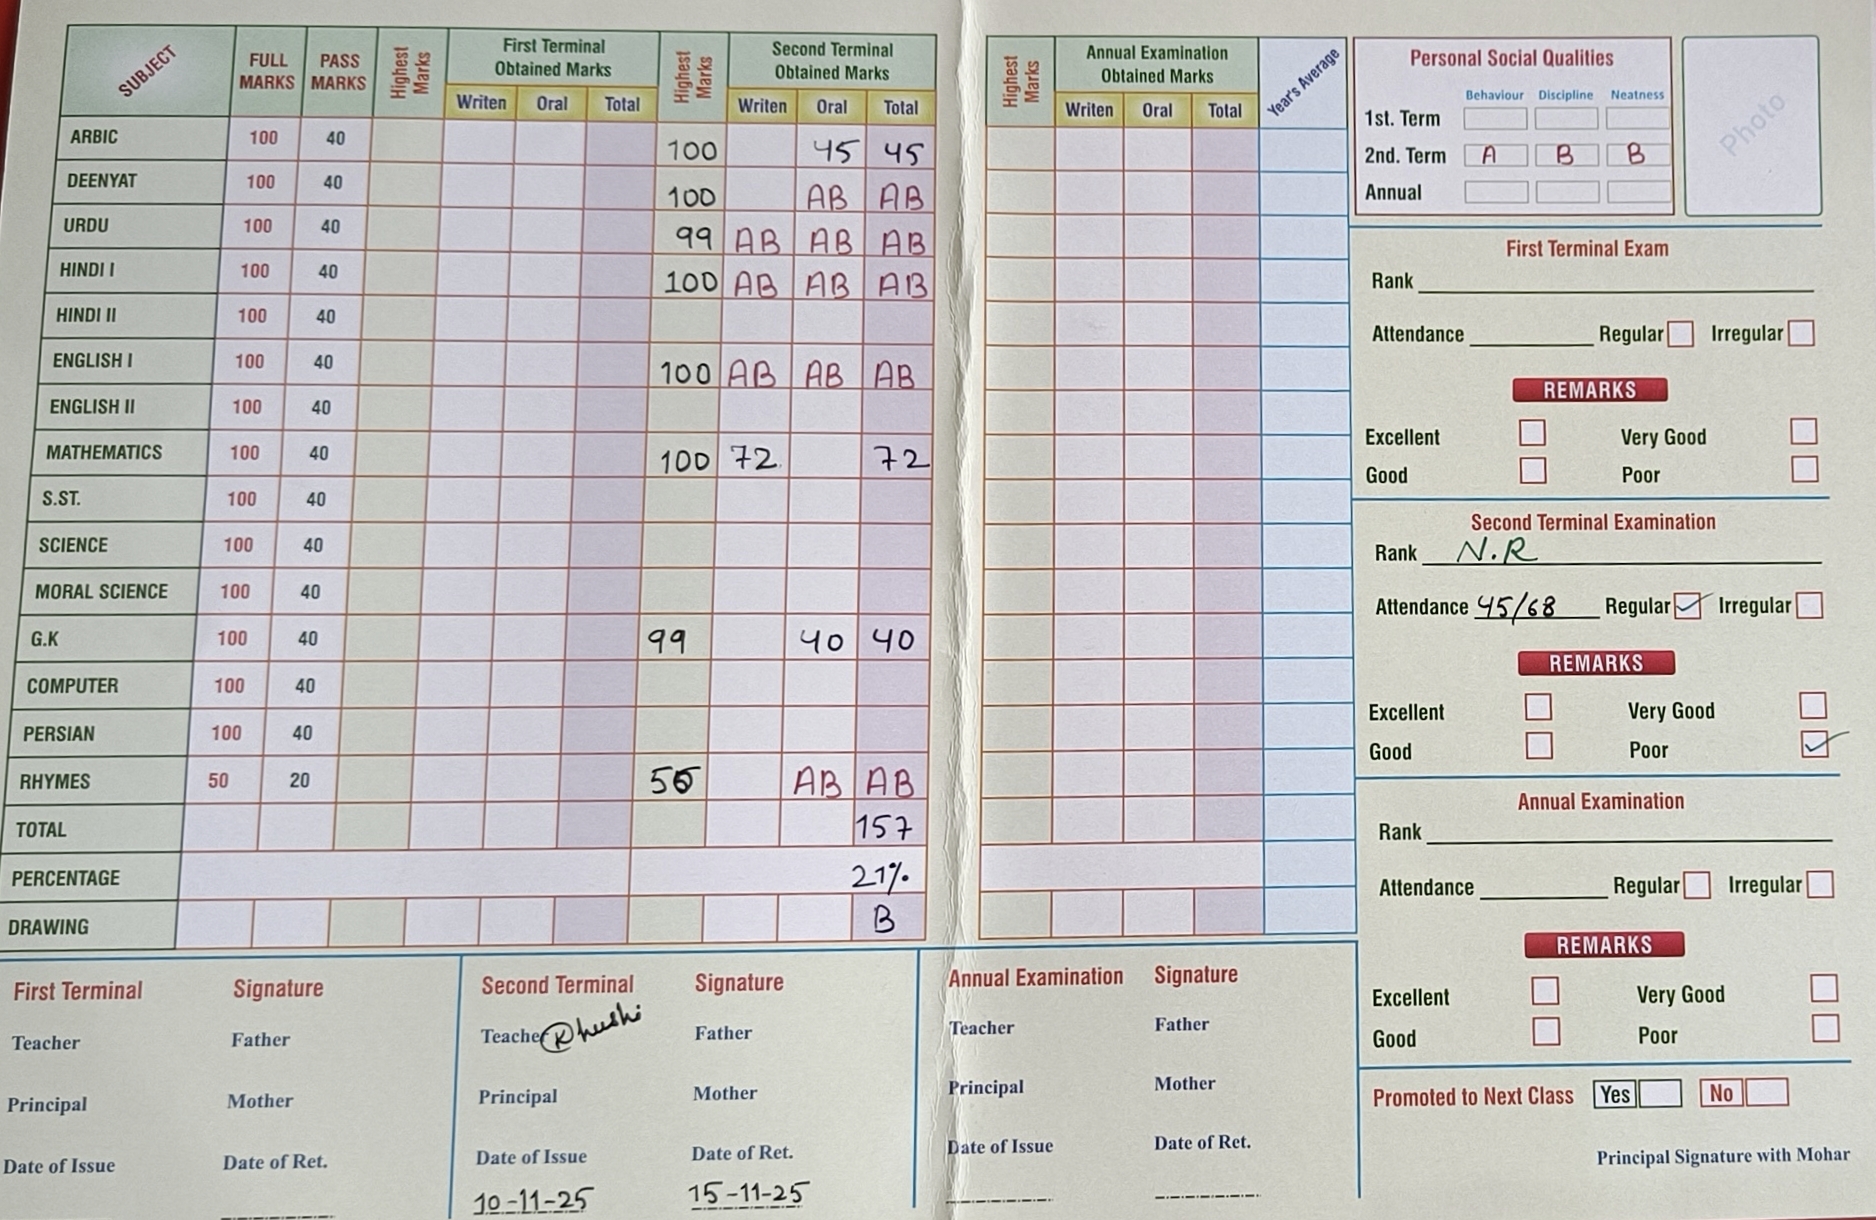 SUBJECT FULL MARKS PASS MARKS Highest Marks First Terminal Obtained Marks Highest Marks Second Terminal Obtained Marks
Writen Oral Total Writen Oral Total
ARBIC 100 40 100 45 45
DEENYAT 100 40 100 AB AB
URDU 100 40 99 AB AB AB
HINDI I 100 40 100 AB AB AB
HINDI II 100 40
ENGLISH I 100 40 100 AB AB AB
ENGLISH II 100 40
MATHEMATICS 100 40 100 72 72
S.ST. 100 40
SCIENCE 100 40
MORAL SCIENCE 100 40
G.K 100 40 99 40 40
COMPUTER 100 40
PERSIAN 100 40
RHYMES 50 20 50 AB AB
TOTAL 157
PERCENTAGE 21%
DRAWING B
First Terminal Signature
Teacher Father
Principal Mother
Date of Issue Date of Ret.
Second Terminal Signature
Teacher Khushi Father
Principal Mother
Date of Issue Date of Ret.
10-11-25 15-11-25
Highest Marks Annual Examination Obtained Marks Year's Average
Writen Oral Total
Annual Examination Signature
Teacher Father
Principal Mother
Date of Issue Date of Ret.
Personal Social Qualities
Behaviour Discipline Neatness
1st. Term
2nd. Term A B B
Annual
Photo
First Terminal Exam
Rank
Attendance Regular Irregular
REMARKS
Excellent Very Good
Good Poor
Second Terminal Examination
Rank N.R
Attendance 45/68 Regular Irregular
REMARKS
Excellent Very Good
Good Poor
Annual Examination
Rank
Attendance Regular Irregular
REMARKS
Excellent Very Good
Good Poor
Promoted to Next Class Yes No
Principal Signature with Mohar